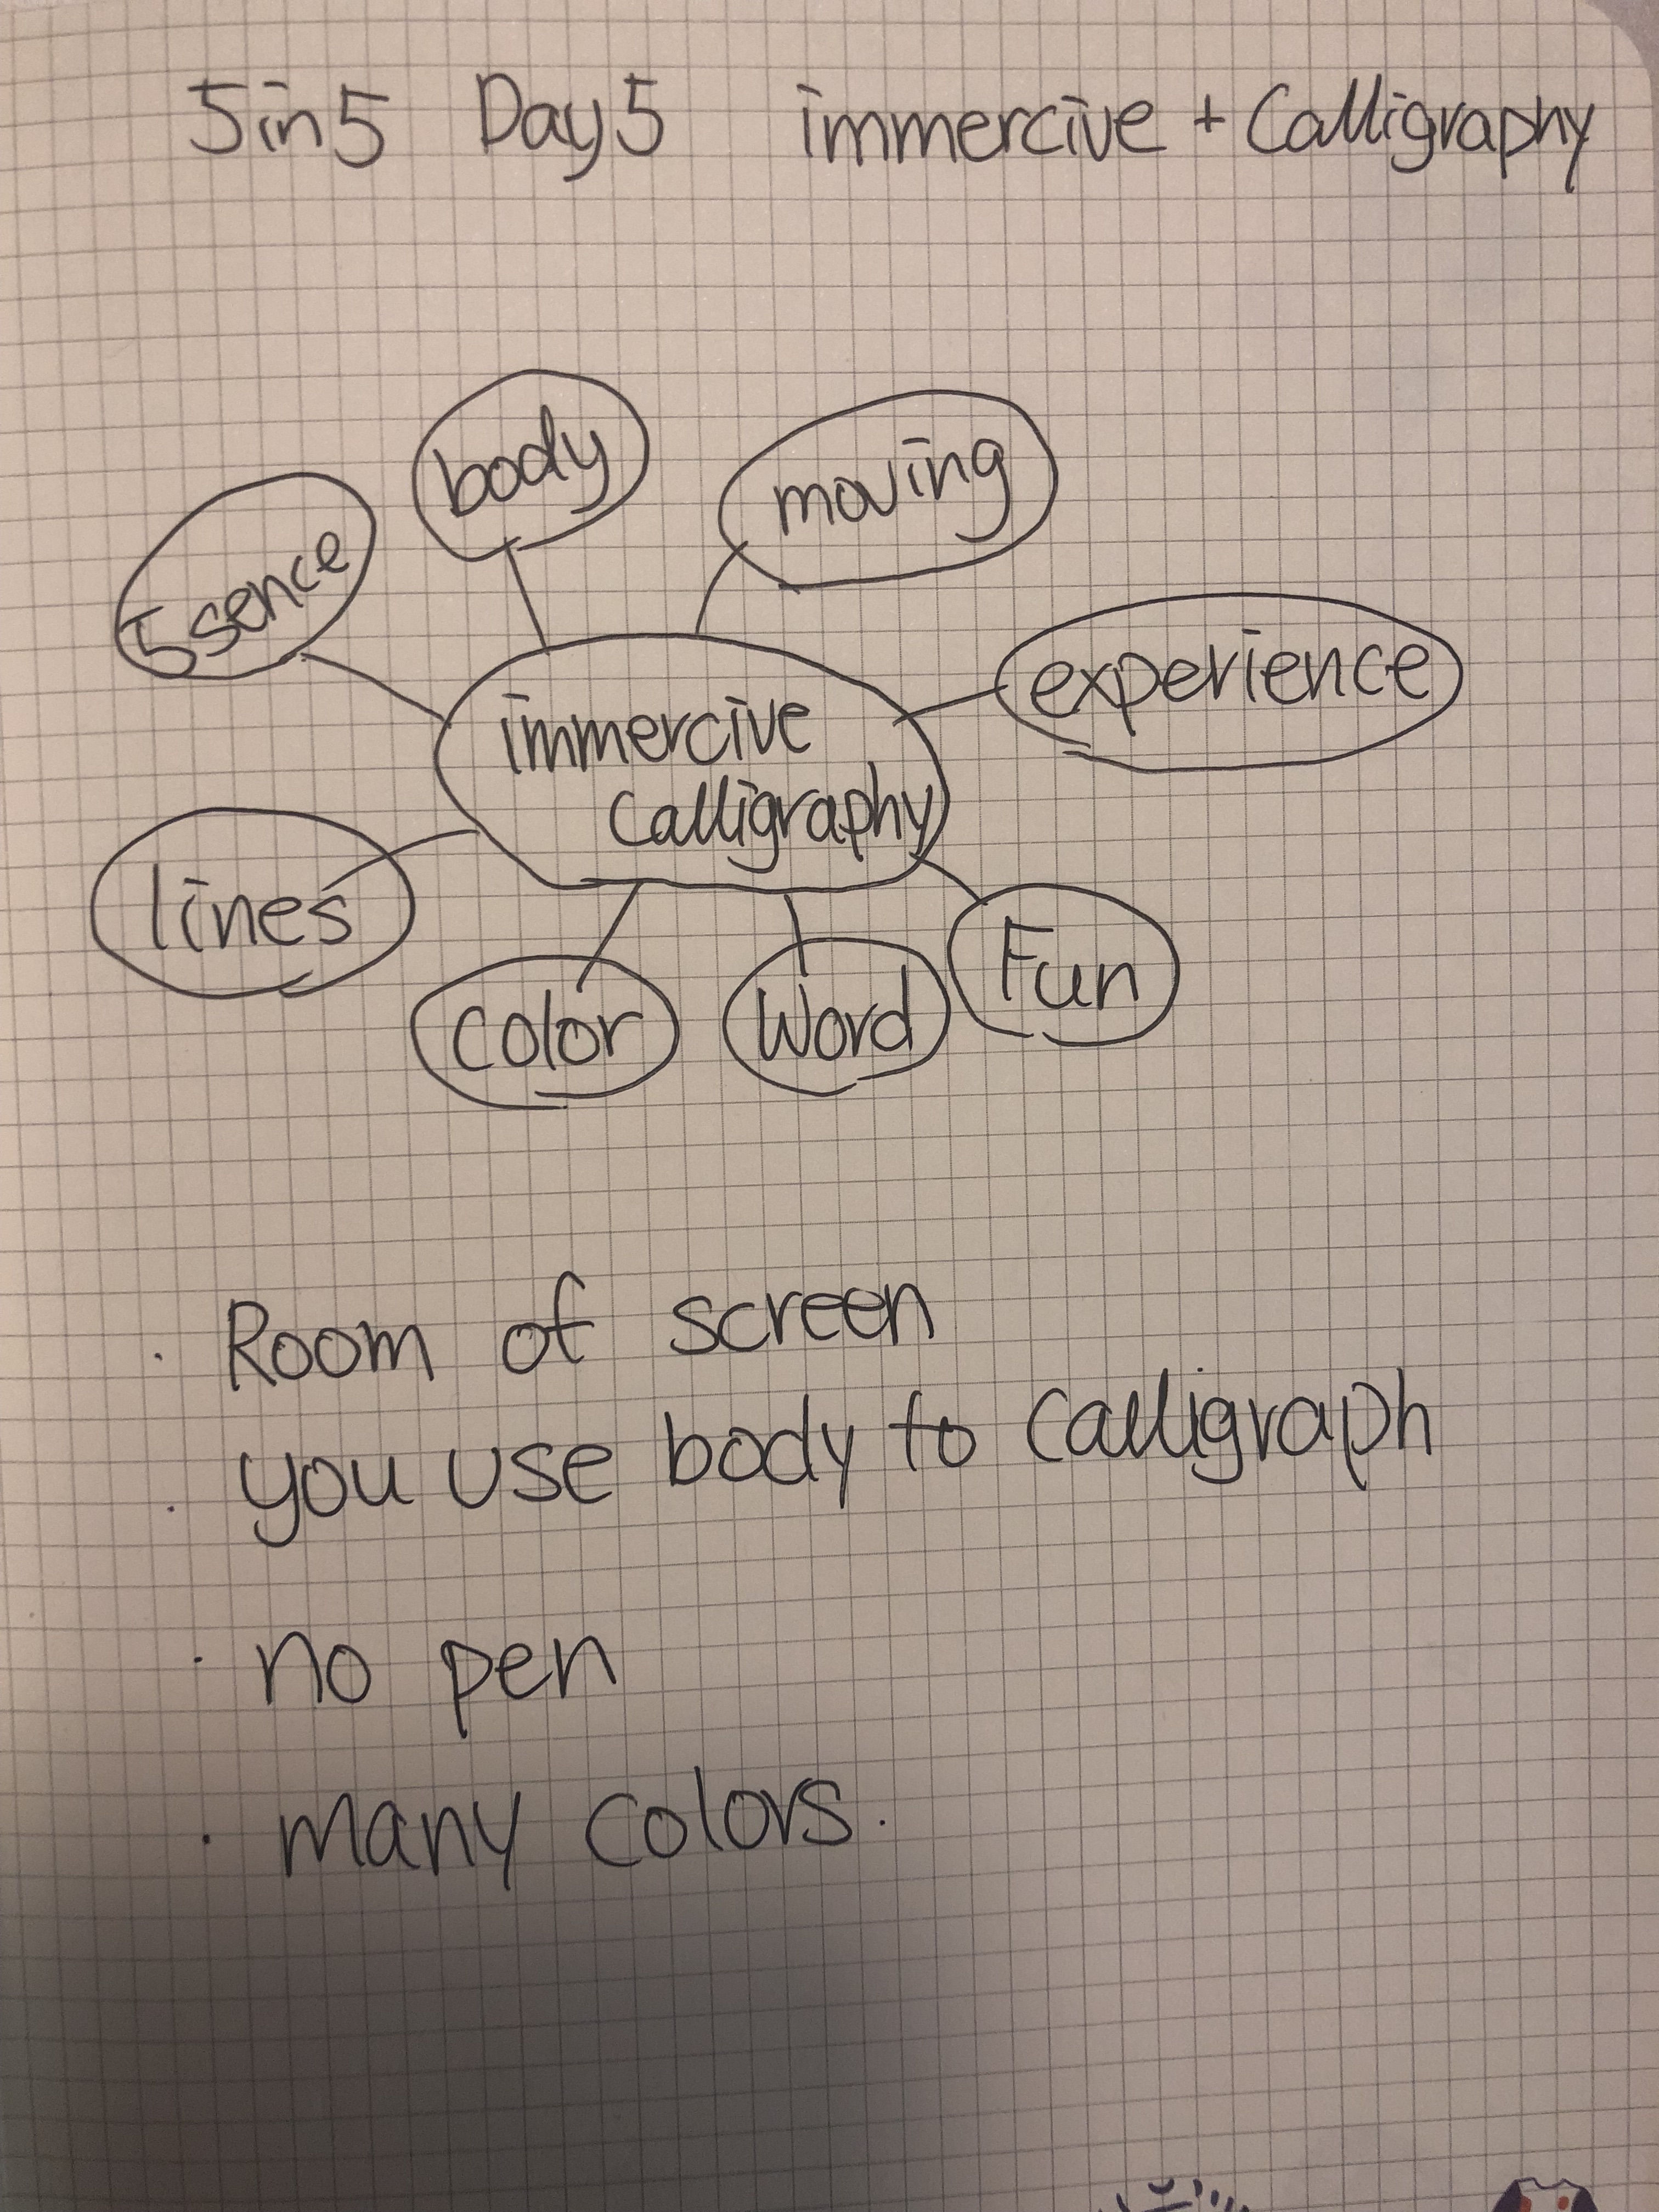 5in5 Day5 immercive + Calligraphy
body
moving
5sence
experience
immercive
Calligraphy
lines
Fun
Color
Word
· Room of screen
· you use body to Calligraph
· no pen
· many colors.